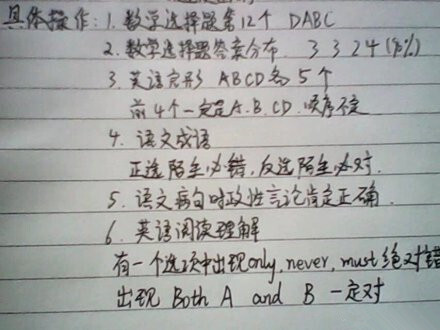 具体操作:1. 数学选择题第12个 DABC
2. 数学选择题答案分布. 3 3 2 4 (90%)
3. 英语完形 ABCD各5个
前4个一定是A.B.CD.顺序不定
4. 语文成语
正选陌生必错,反选陌生必对.
5. 语文病句时政性言论肯定正确.
6. 英语阅读理解
有一个选项中出现only, never, must 绝对错
出现 Both A and B 一定对